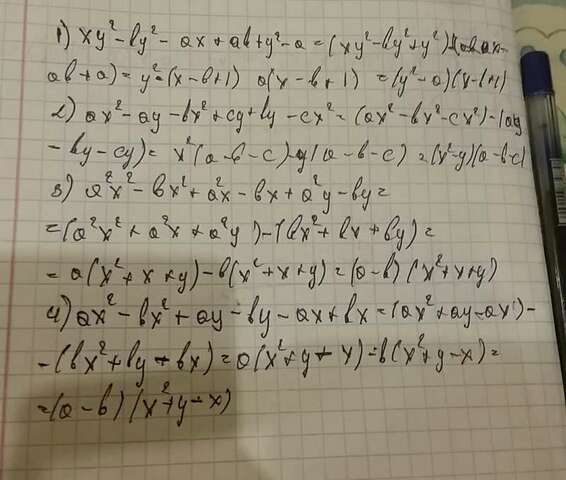 1) xy² - by² - ax + ab + y² - a = (xy² - by² + y²)
ab + a) = y² (x - b + 1) a(x - b + 1) = (y² - a)(x - b + 1)
2) ax² - ay - bx² + cy + by - cx² = (ax² - bx² - cx²) - (ay
- by - cy) = x²(a - b - c) - y(a - b - c) = (x² - y)(a - b - c)
3) a²x² - bx² + a²x - bx + a²y - by =
= (a²x² + a²x + a²y) - (bx² + bx + by) =
= a(x² + x + y) - b(x² + x + y) = (a - b)(x² + x + y)
4) ax² - bx² + ay - by - ax + bx = (ax² + ay - ax) -
- (bx² + by - bx) = a(x² + y - x) - b(x² + y - x) =
= (a - b)(x² + y - x)